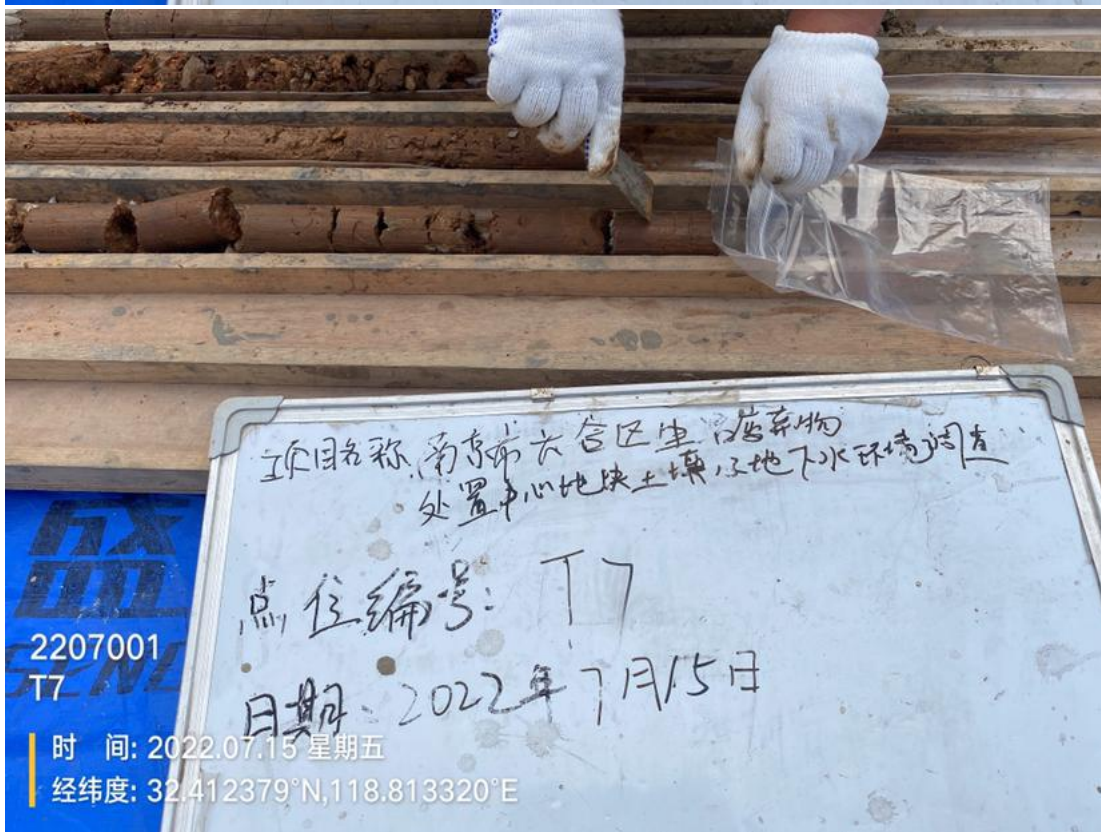 项目名称:南京市六合区生活废弃物
处置中心地块土壤及地下水环境调查
点位编号: T7
日期: 2022年7月15日
2207001
T7
时 间: 2022.07.15 星期五
经纬度: 32.412379°N,118.813320°E